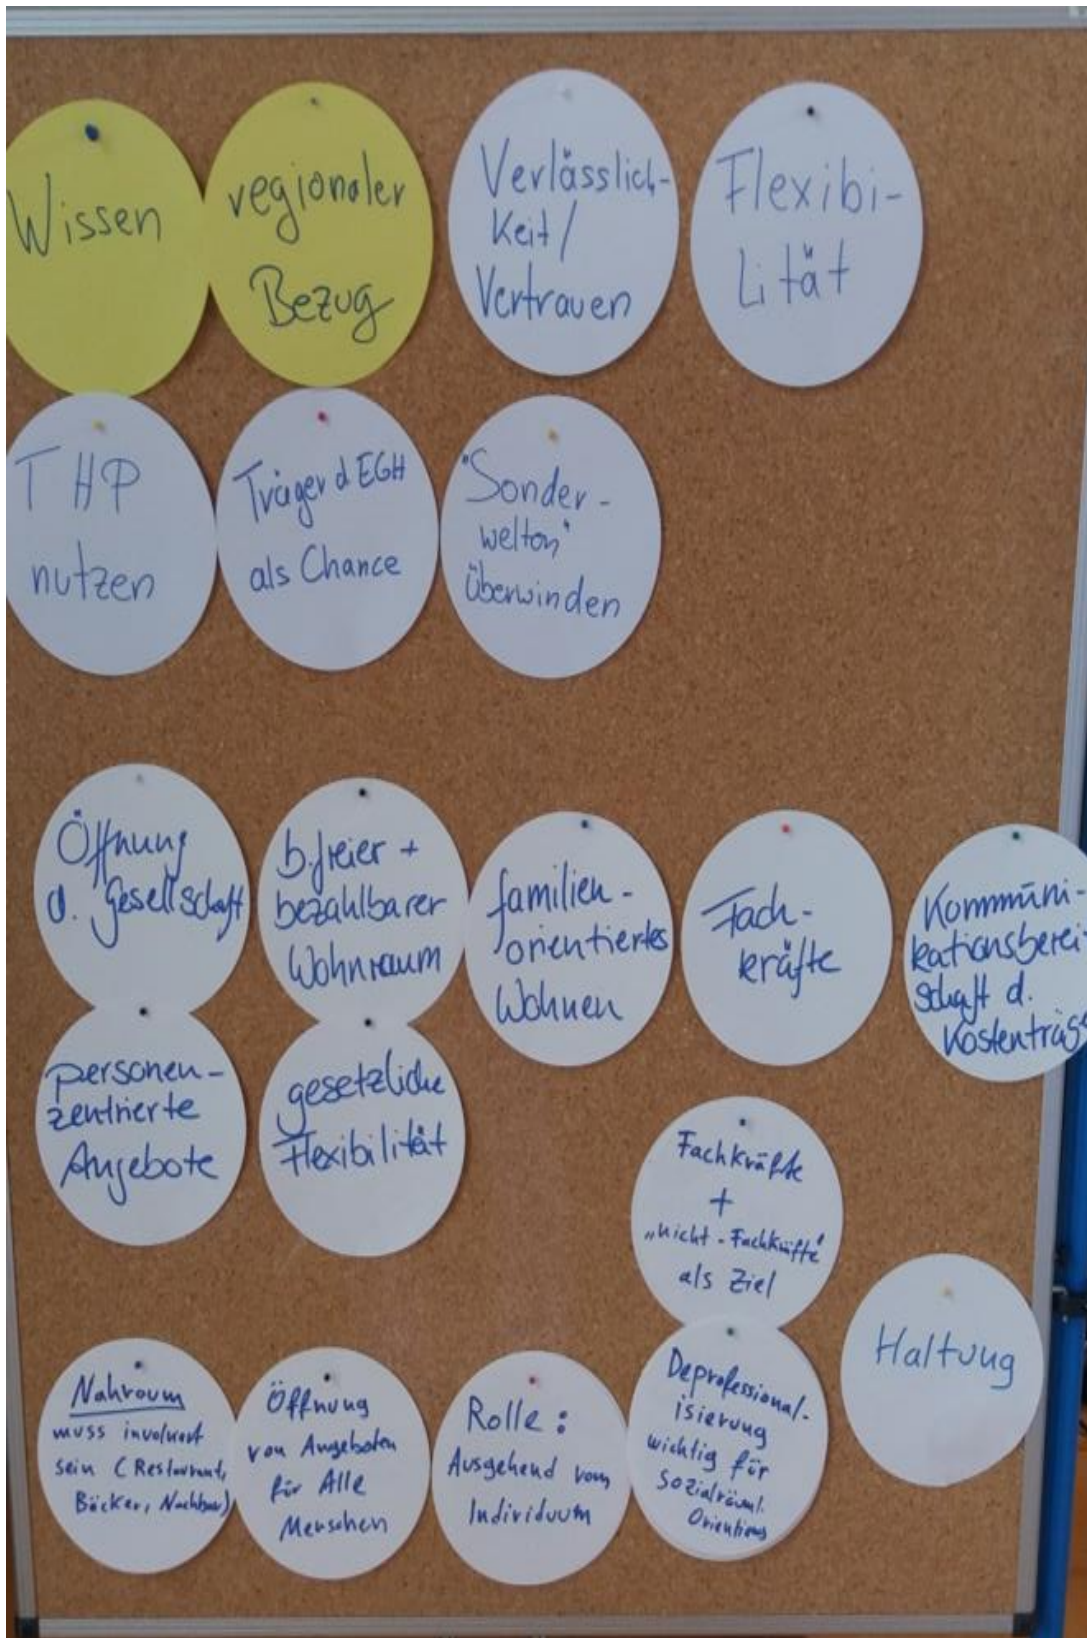 Wissen
regionaler
Bezug
Verlässlich-
keit/
Vertrauen
Flexibi-
lität
THP
nutzen
Träger d EGH
als Chance
"Sonder-
welten"
überwinden
Öffnung
d. Gesellschaft
b.freier +
bezahlbarer
Wohnraum
familien-
orientiertes
Wohnen
Fach-
kräfte
Kommuni-
kationsberei-
schaft d.
Kostenträg
personen-
zentrierte
Angebote
gesetzliche
Flexibilität
Fachkräfte
+
„nicht-Fachkräfte"
als Ziel
Haltung
Nahraum
muss involviert
sein (Restaurant,
Bäcker, Nachbar)
Öffnung
von Angeboten
für Alle
Menschen
Rolle:
Ausgehend vom
Individuum
Deprofessional-
isierung
wichtig für
Sozialräuml.
Orientierung